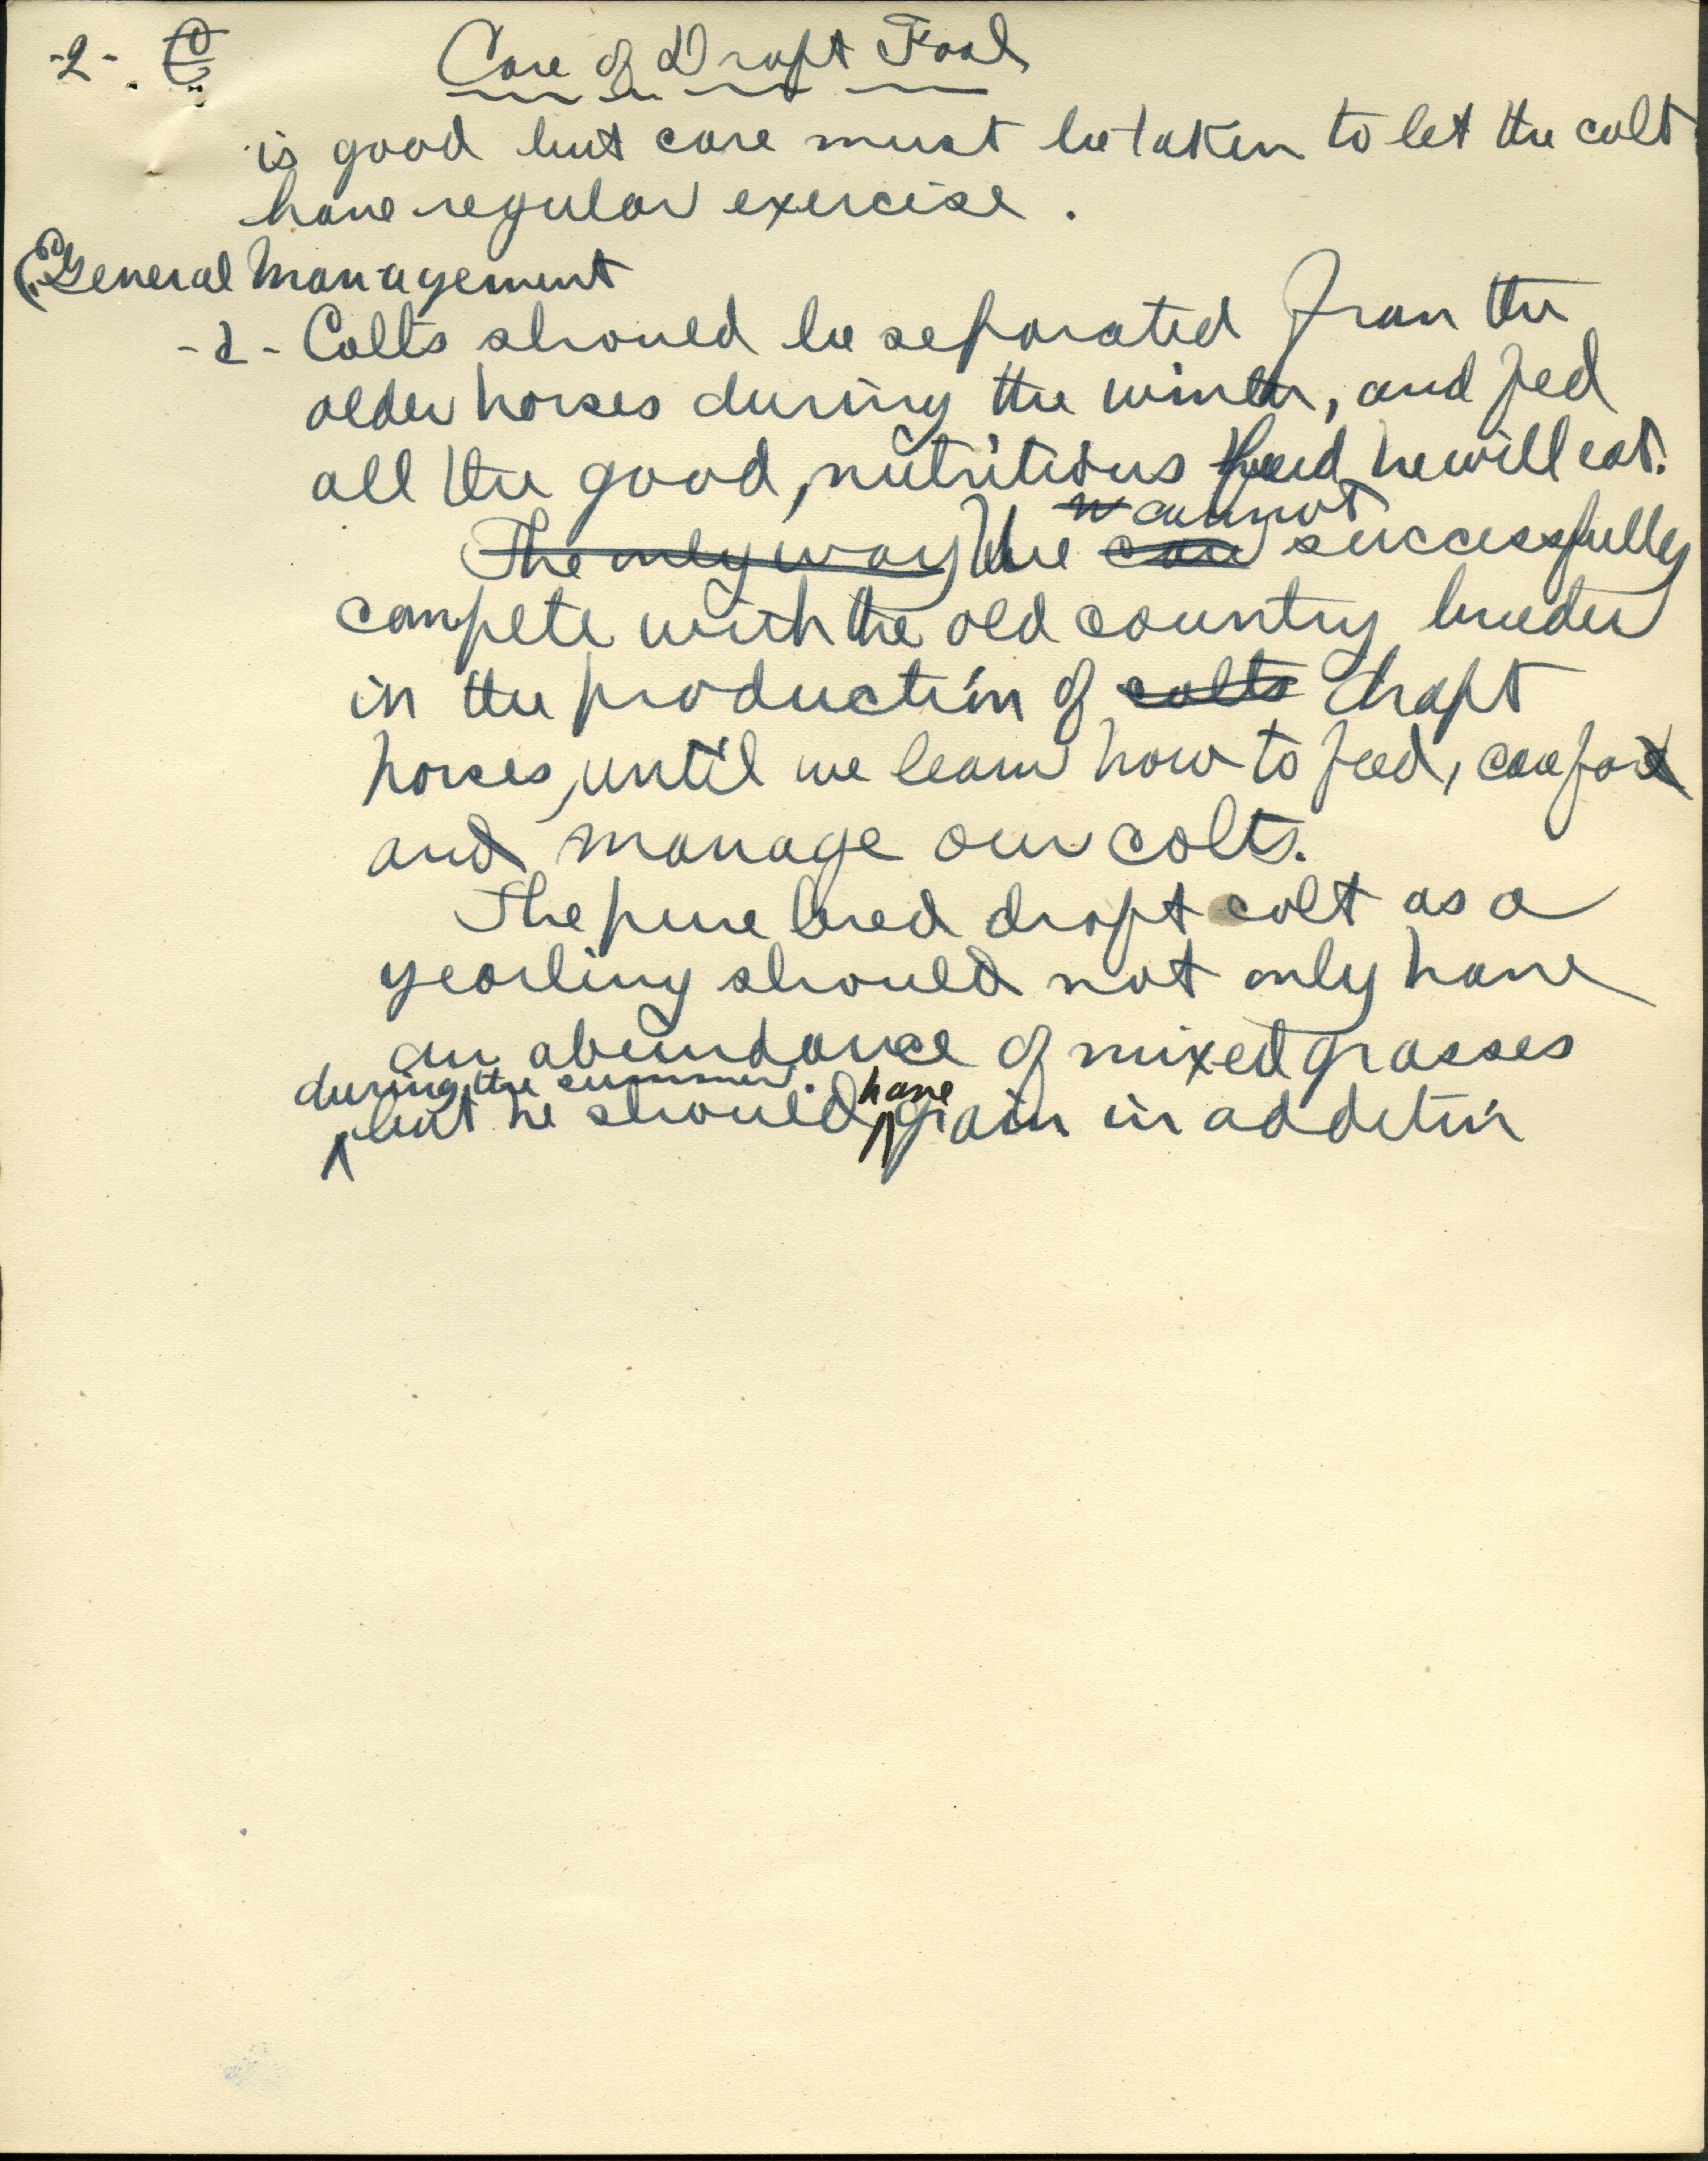 -2-
Care of Draft Foal
is good but care must be taken to let the colt
have regular exercise.
General Management
-2- Colts should be separated from the
older horses during the winter, and fed
all the good, nutritious feed he will eat.
cannot
The only way We can successfully
compete with the old country breeder
in the production of colts draft
horses, until we learn how to feed, care for
and manage our colts.
The pure bred draft colt as a
yearling should not only have
an abundance of mixed grasses
during the summer. have
but he should grain in addition